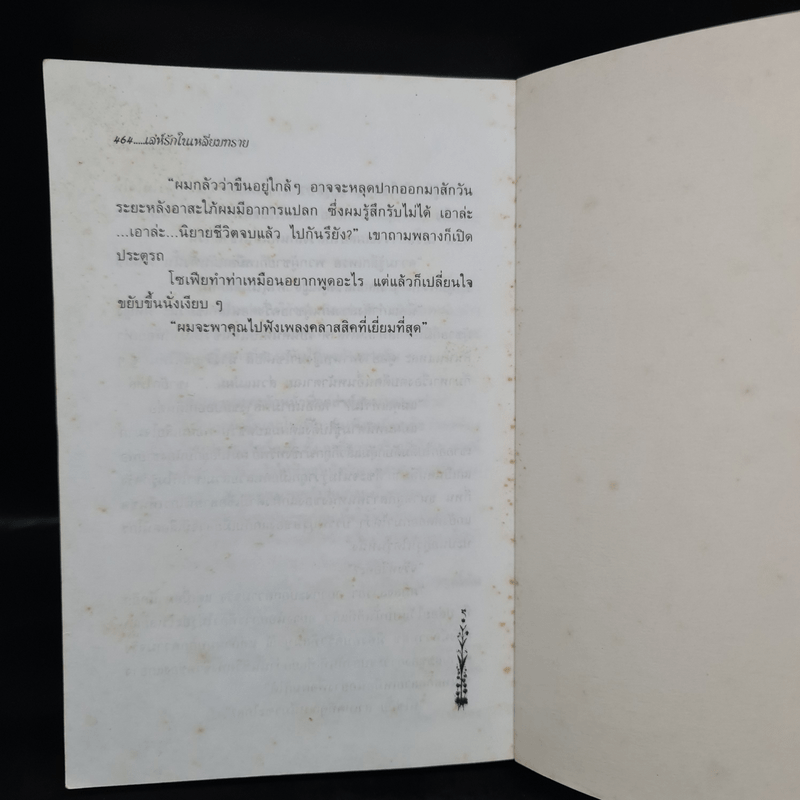 464.....เล่ห์รักในเหลี่ยมทราย
"ผมกลัวว่าขืนอยู่ใกล้ๆ อาจจะหลุดปากออกมาสักวัน
ระยะหลังอาสะใภ้ผมมีอาการแปลก ซึ่งผมรู้สึกรับไม่ได้ เอาล่ะ
...เอาล่ะ...นิยายชีวิตจบแล้ว ไปกันรึยัง?" เขาถามพลางก็เปิด
ประตูรถ
โซเฟียทำท่าเหมือนอยากพูดอะไร แต่แล้วก็เปลี่ยนใจ
ขยับขึ้นนั่งเงียบ ๆ
"ผมจะพาคุณไปฟังเพลงคลาสสิคที่เยี่ยมที่สุด"